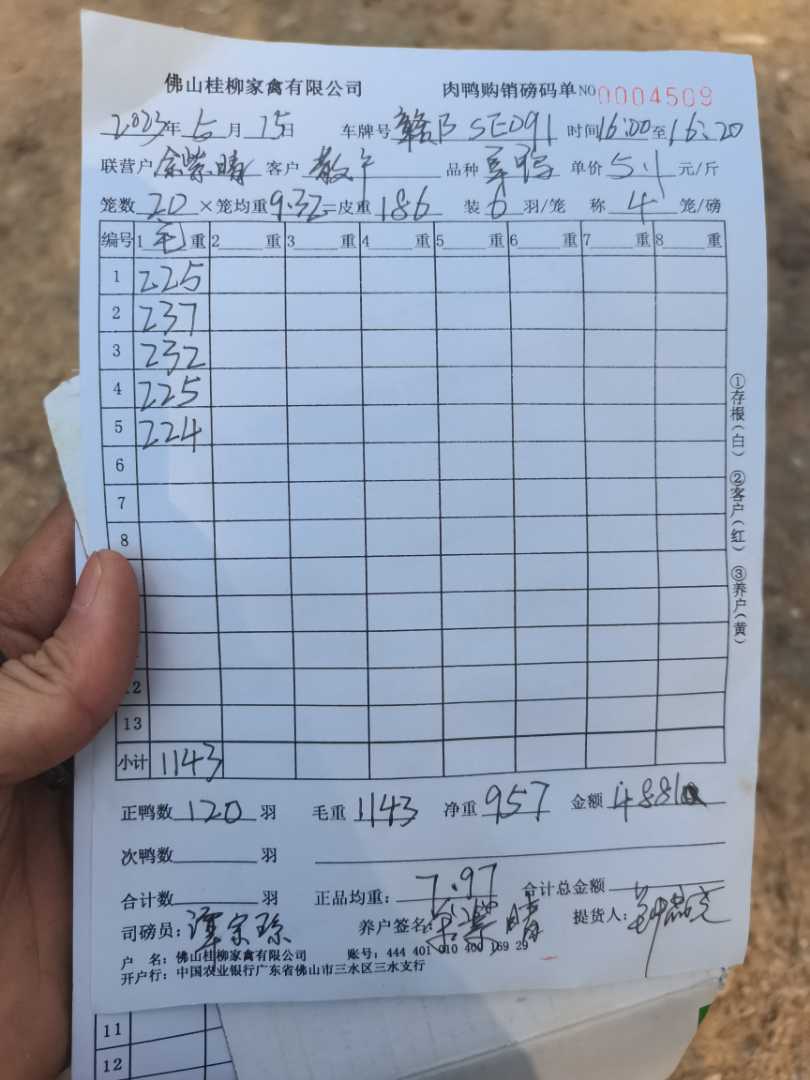 佛山桂柳家禽有限公司 肉鸭购销磅码单 NO 0004509
2023年5月15日 车牌号 赣B SE091 时间16:00至16:20
联营户 紫晴 客户 散户 品种 单价5.1 元/斤
笼数 20 ×笼均重9.32=皮重 186 装 6 羽/笼 称 4 笼/磅
编号 1 毛 重 2 重 3 重 4 重 5 重 6 重 7 重 8 重
1 225
2 237
3 232
4 225
5 224
6
7
8
12
13
小计 1143
正鸭数 120 羽 毛重 1143 净重 957 金额 4881
次鸭数 羽
合计数 羽 正品均重: 7.97 合计总金额
司磅员: 谭宗琼 养户签名: 紫晴 提货人:
户 名: 佛山桂柳家禽有限公司 账号: 444 401 010 400 169 29
开户行: 中国农业银行广东省佛山市三水区三水支行
①存根(白) ②客户(红) ③养户(黄)
11
12